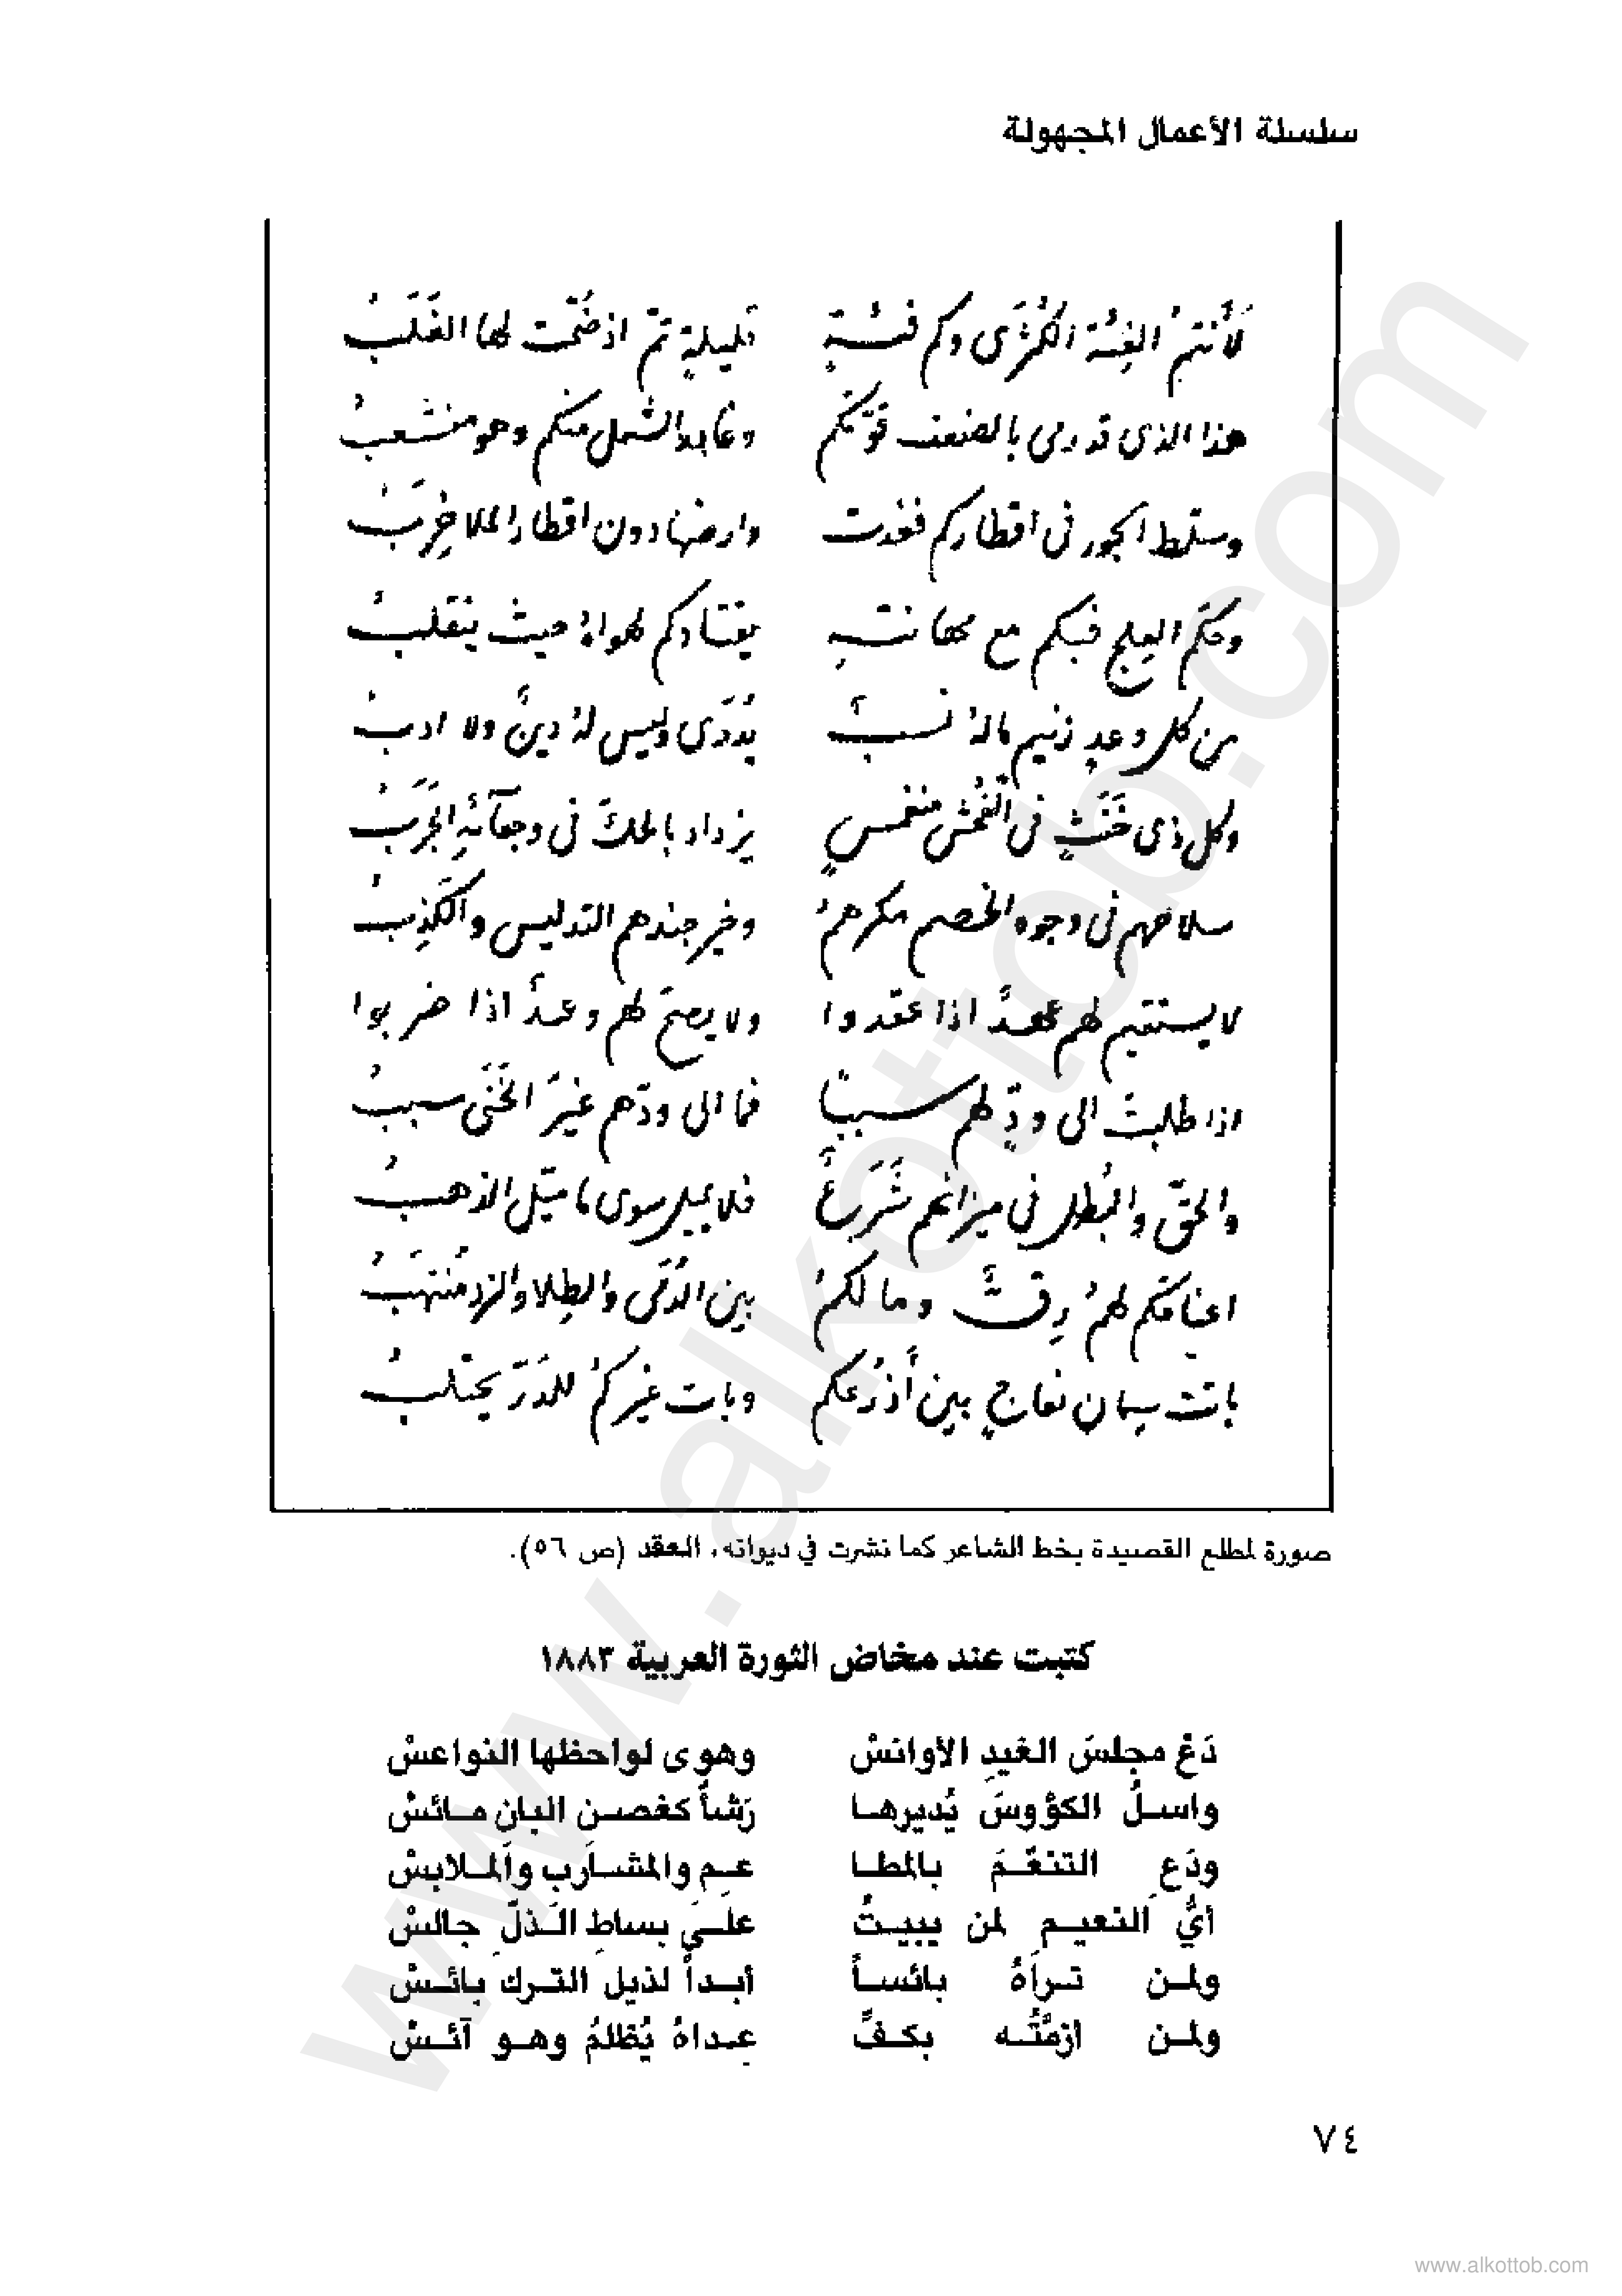 سلسلة الأعمال المجهولة
لَأَنتمُ الفِئة الكُثْرَى وكم فئةٍ قليلةٍ تمّ اذ ضُمَّت لها الغَلَبُ
هذا الذى قد رمى بالضعف قوّتكم وغادر الشمل منكم وهو منشعبُ
وسلّط الجور فى اقطاركم فغدت وارضها دون اقطار الملا خِرَبُ
وحكّم العِلج فيكم مع مهانتهِ يقتادكم لهواهُ حيث ينقلبُ
من كل وغدٍ زنيم مالهُ نسبٌ يُدرَى وليس لهُ دينٌ ولا ادبُ
وكل ذى خَنَثٍ فى الفُحش منغمسٍ يزداد بالحكّ فى وجعآئهِ الجَرَبُ
سلاحهم فى وجوه الخصم مكرهمُ وخير جندهم التدليس والكَذِبُ
لا يستقيم لهم عهدٌ اذا عقدوا ولا يصحّ لهم وعدٌ اذا ضربوا
اذا طلبتَ الى ودٍّ لهم سببًا فما الى ودّهم غيرَ الخَنَى سببُ
والحقّ والبُطل فى ميزانهم شَرَعٌ فلا يميل سوى ما ميّل الذهبُ
اعناقكم لهمُ رِقٌّ ومالكمُ بين الدُمَى والطِلا والنرد مُنتهَبُ
باتت سِمان نعاجٍ بين أَذرُعكم وبات غيركمُ للدَرّ يحتلبُ
صورة لمطلع القصيدة بخط الشاعر كما نشرت في ديوانه، العقد (ص ٥٦).
كتبت عند مخاض الثورة العربية ١٨٨٣
دَعْ مجلسَ الغيدِ الأوانسْ وهوى لواحظها النواعسْ
واسلُ الكؤوسَ يُديرها رَشأٌ كغصن البان مائسْ
ودَعِ التنعّمَ بالمطا عمِ والمشاربِ والملابسْ
أيُّ النعيم لمن يبيتُ على بساطِ الذلّ جالسْ
ولمن تراهُ بائساً أبداً لذيل الترك بائسْ
ولمن أزمَّتُه بكفِّ عِداهُ يُظلمُ وهو آئسْ
٧٤
www.alkottob.com
www.alkottob.com